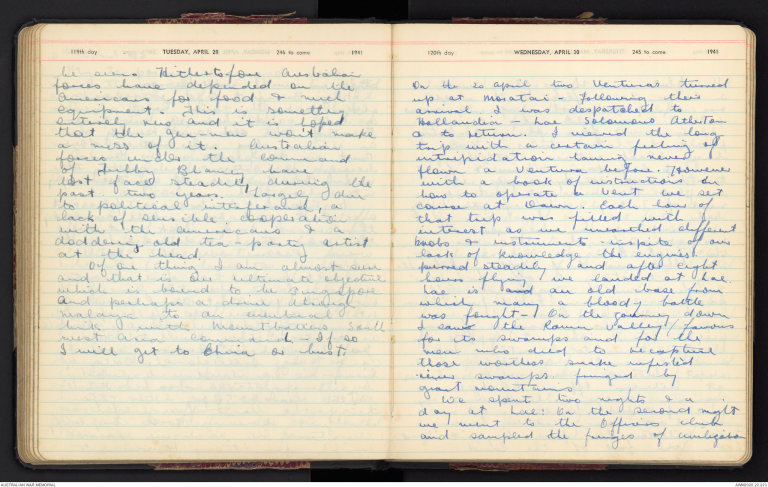 119th day TUESDAY, APRIL 29 246 to come 1941
Hithertofore Australian
forces have depended on the
Americans for food & much
equipment. This is something
entirely new and it is hoped
that the won't make
a mess of it. Australian
forces under the command
of Tubby Blamey have
lost face steadily during the
past two years. Largely due
to political interference, a
lack of sensible cooperation
with the americans & a
doddering old tea-party artist
at the head.
Of one thing I am almost sure
and that is our ultimate objective
which is bound to be Singapore
and perhaps a drive through
Malaya to an eventual
link with Mountbatten's South
East Asia Command - If so
I will get to China or bust.
120th day WEDNESDAY, APRIL 30 245 to come 1941
On the 20 april two Venturas turned
up at Morotai - following their
arrival I was despatched to
Hollandia - Lae Solomons Atherton
& to return. I viewed the long
trip with a certain feeling of
intrepidation having never
flown a Ventura before. However
with a book of instructions on
how to operate a Vent we set
course at Dawn. Each hour of
that trip was filled with
interest as we unearthed different
knobs & instruments - inspite of our
lack of knowledge the engines
purred steadily and after eight
hours flying we landed at Lae.
Lae is an old base from
which many a bloody battle
was fought - On the journey down
I saw the Ramu valley, famous
for its swamps and for the
men who died to recapture
those worthless snake infested
river swamps fringed by
giant mountains.
We spent two nights & a
day at Lae: On the second night
we went to the Officers club
and sampled the fringes of civilization
AUSTRALIAN WAR MEMORIAL